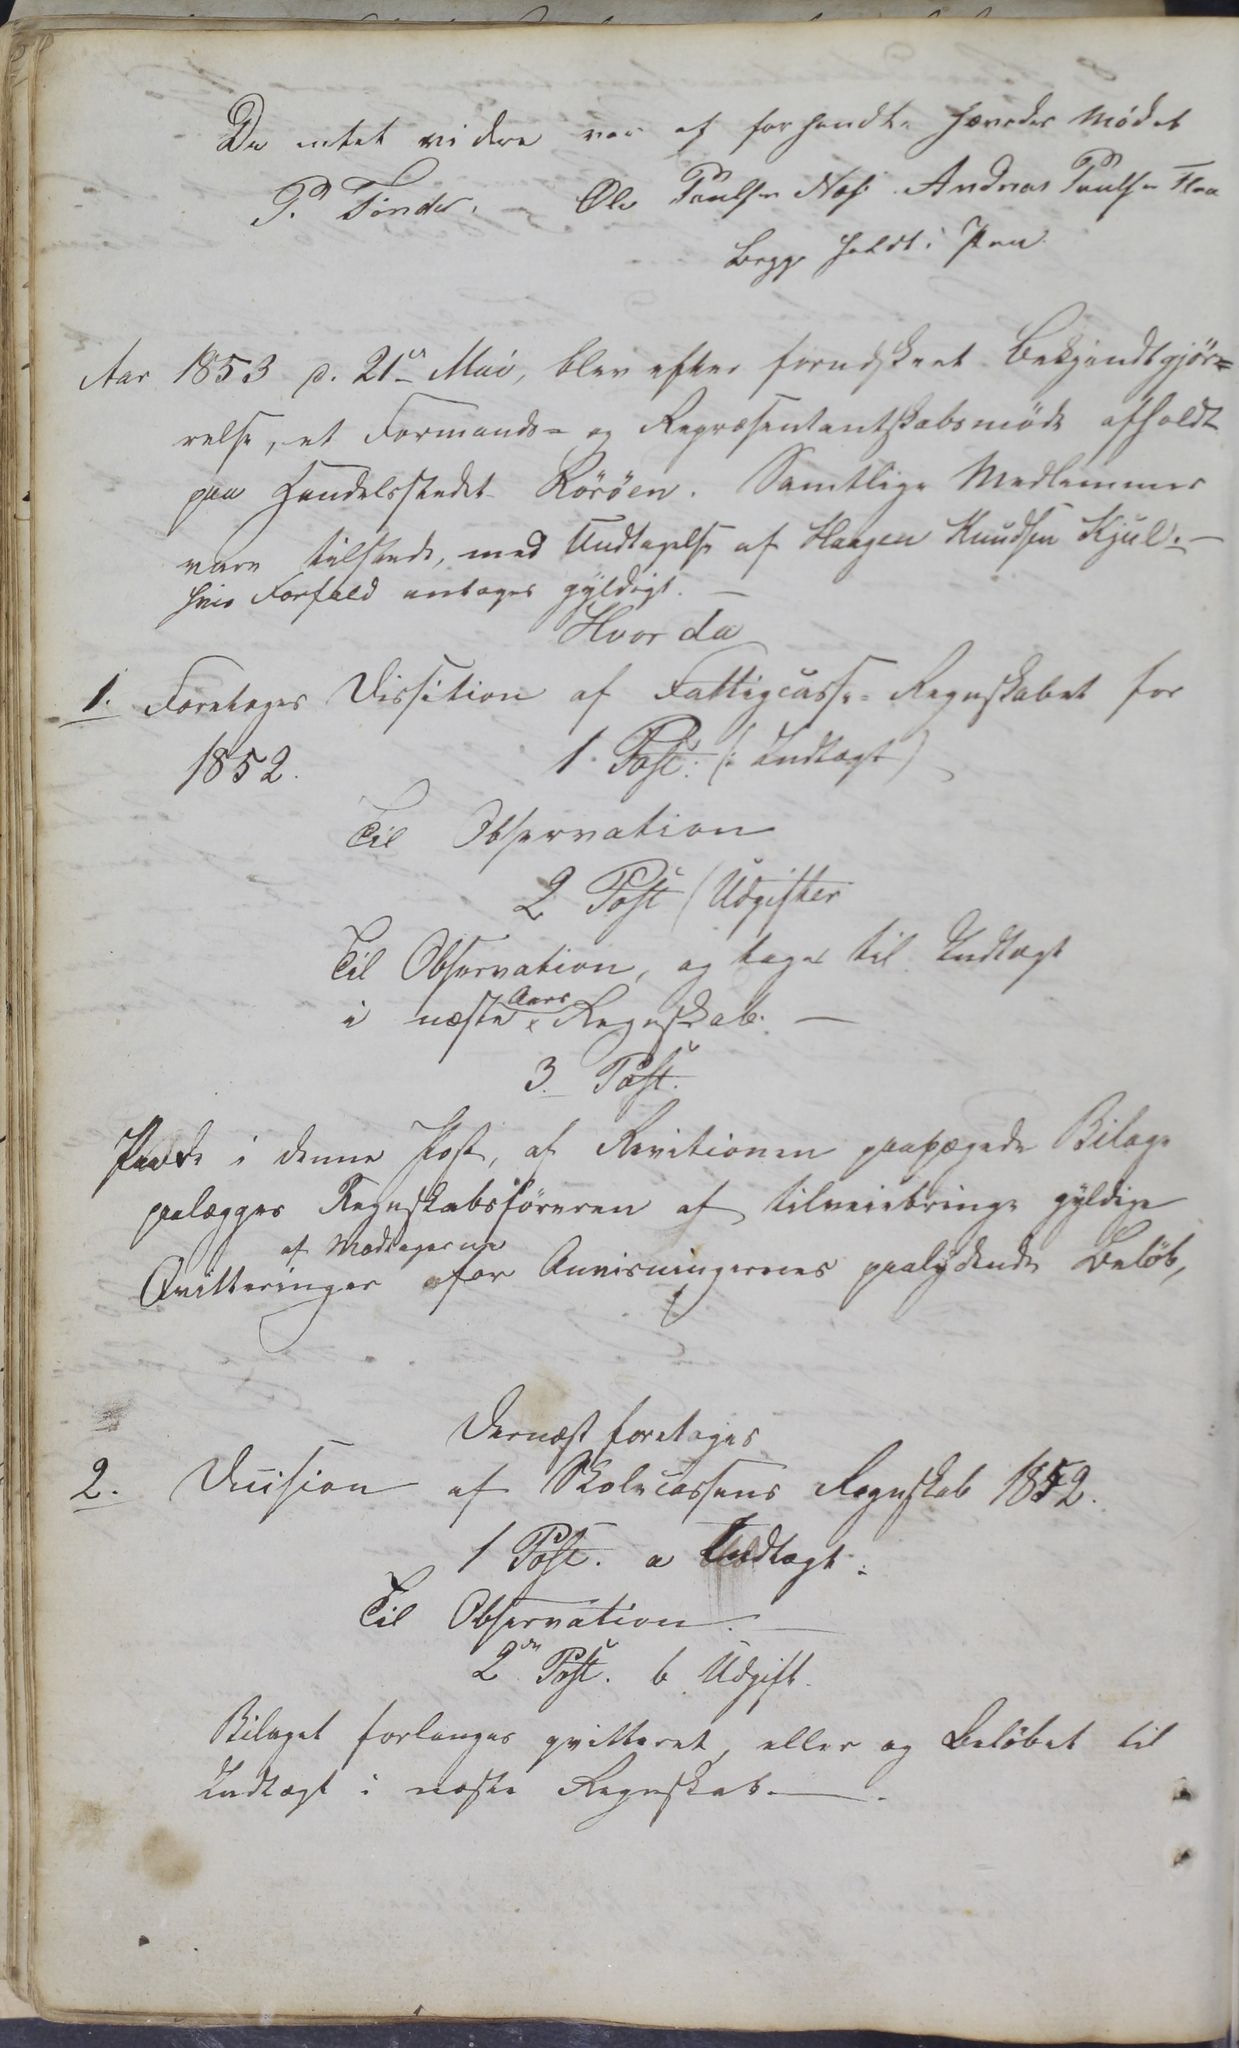 Da intet videre var at forhandle hævedes Mødet
P. Tønder. Ole Paulsen Næs. Andreas Paulsen Flaa
begge holdt i Pen
Aar 1853 d. 21de Mai, blev efter forudskeet Bekjendtgjör=
relse, et Formands= og Repræsentantskabsmöde afholdt
paa Handelsstedet Röröen. Samtlige Medlemmer
vare tilstede, med Undtagelse af Haagen Knudsen Kjul. —
hvis Forfald antages gyldigt. —
Hvor da
1. Foretoges Dissition af Fattigcasse-Regnskabet for
1852. 1. Post. (: Indtægt)
Til Observation
2 Post (Udgifter
Til Observation, og tages til Indtægt
i næste Aars Regnskab. —
3. Post.
Paa de i denne Post, af Revitionen paapegede Bilage
paalægges Regnskabsföreren at tilveiebringe gyldige
Qvitteringer af Modtagerne for Anvisningernes paalydende Belöb,
Dernæst foretoges
2. Decision af Skolecassens Regnskab 1852.
1 Post. a Indtægt:
Til Observation. —
2den Post. b Udgift.
Bilaget forlanges qvitteret, eller og Belöbet til
Indtægt i næste Regnskab. — .